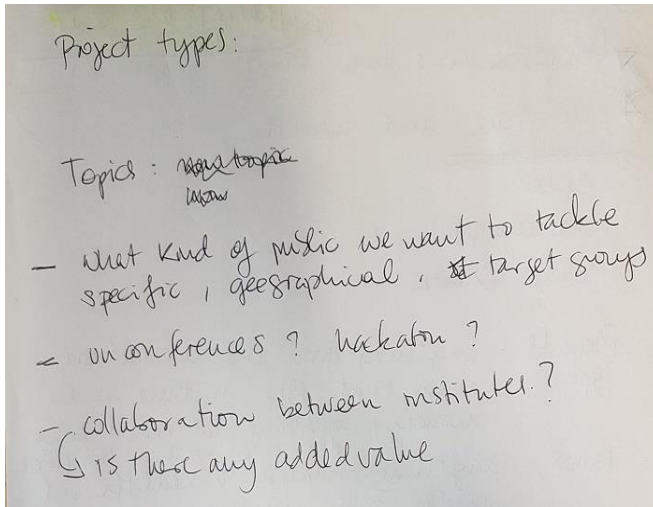 Project types:
Topics:
- what kind of public we want to tackle
specific, geographical, target groups
- unconferences? hackaton?
- collaboration between institutes.?
is there any added value